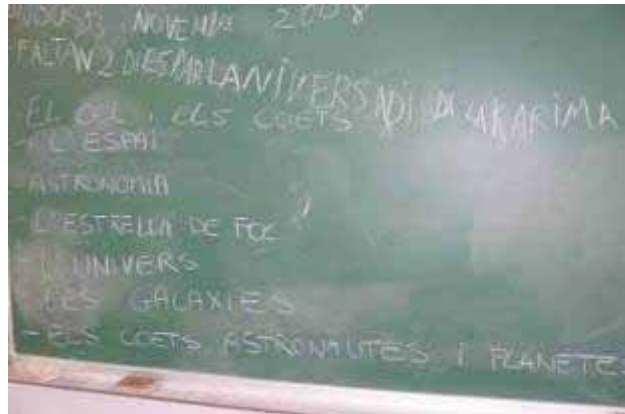 NOVEMBRE 2008
FALTAN 2 DIES PAR LANIVERSADI DA LAKARIMA
EL SOL I ELS COETS
- L'ESPAI
ASTRONOMIA
- L'ESTRELLA DE FOC
L'UNIVERS
LES GALAXIES
- ELS COETS ASTRONAUTES I PLANETES